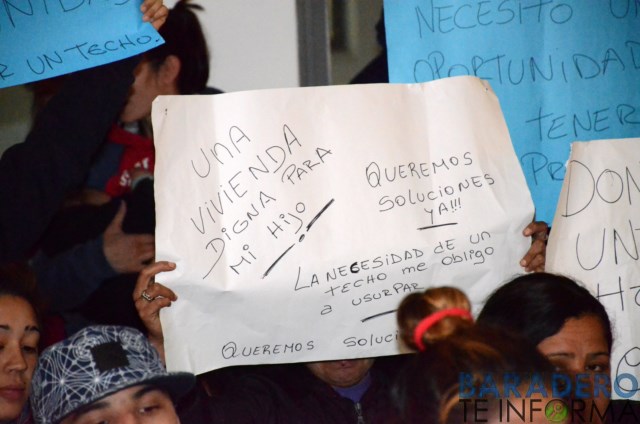 UN TECHO.
NECESITO UN
OPORTUNIDAD
TENER
UNA
VIVIENDA
DIGNA PARA
MI HIJO
QUEREMOS
SOLUCIONES
YA!!!
LA NECESIDAD DE UN
TECHO ME OBLIGO
A USURPAR
QUEREMOS
BARADERO
TE INFORMA